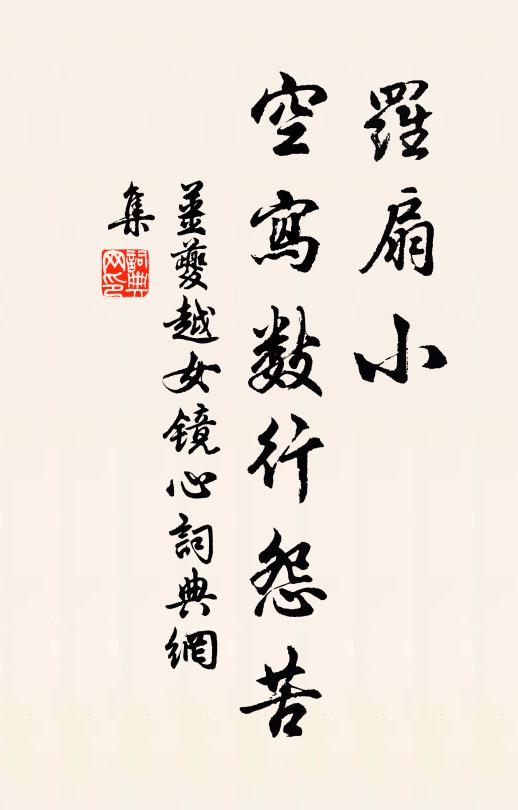 羅扇小
空寫數行怨苦
姜夔越女镜心詞典網
集
詞典网印